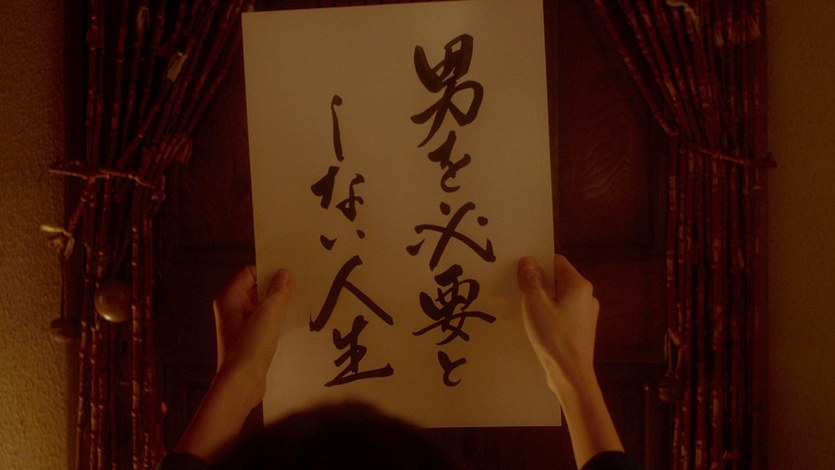 男を必要と
しない人生